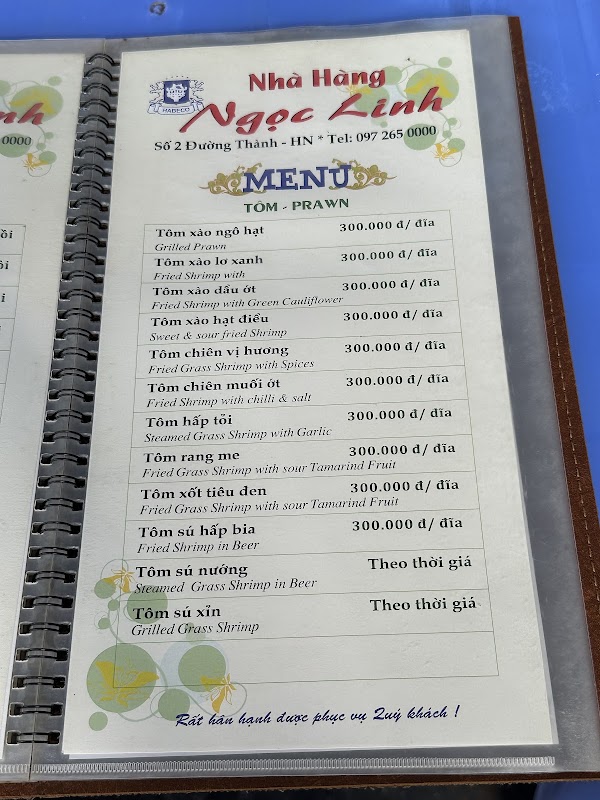 nh
0000
ồi
ôi
i
i
HABECO
Nhà Hàng
Ngọc Linh
Số 2 Đường Thành - HN * Tel: 097 265 0000
MENU
TÔM - PRAWN
Tôm xào ngô hạt 300.000 đ/ đĩa
Grilled Prawn
Tôm xào lơ xanh 300.000 đ/ đĩa
Fried Shrimp with
Tôm xào dầu ớt 300.000 đ/ đĩa
Fried Shrimp with Green Cauliflower
Tôm xào hạt điều 300.000 đ/ đĩa
Sweet & sour fried Shrimp
Tôm chiên vị hương 300.000 đ/ đĩa
Fried Grass Shrimp with Spices
Tôm chiên muối ớt 300.000 đ/ đĩa
Fried Shrimp with chilli & salt
Tôm hấp tỏi 300.000 đ/ đĩa
Steamed Grass Shrimp with Garlic
Tôm rang me 300.000 đ/ đĩa
Fried Grass Shrimp with sour Tamarind Fruit
Tôm xốt tiêu đen 300.000 đ/ đĩa
Fried Grass Shrimp with sour Tamarind Fruit
Tôm sú hấp bia 300.000 đ/ đĩa
Fried Shrimp in Beer
Tôm sú nướng Theo thời giá
Steamed Grass Shrimp in Beer
Tôm sú xỉn Theo thời giá
Grilled Grass Shrimp
Rất hân hạnh được phục vụ Quý khách !